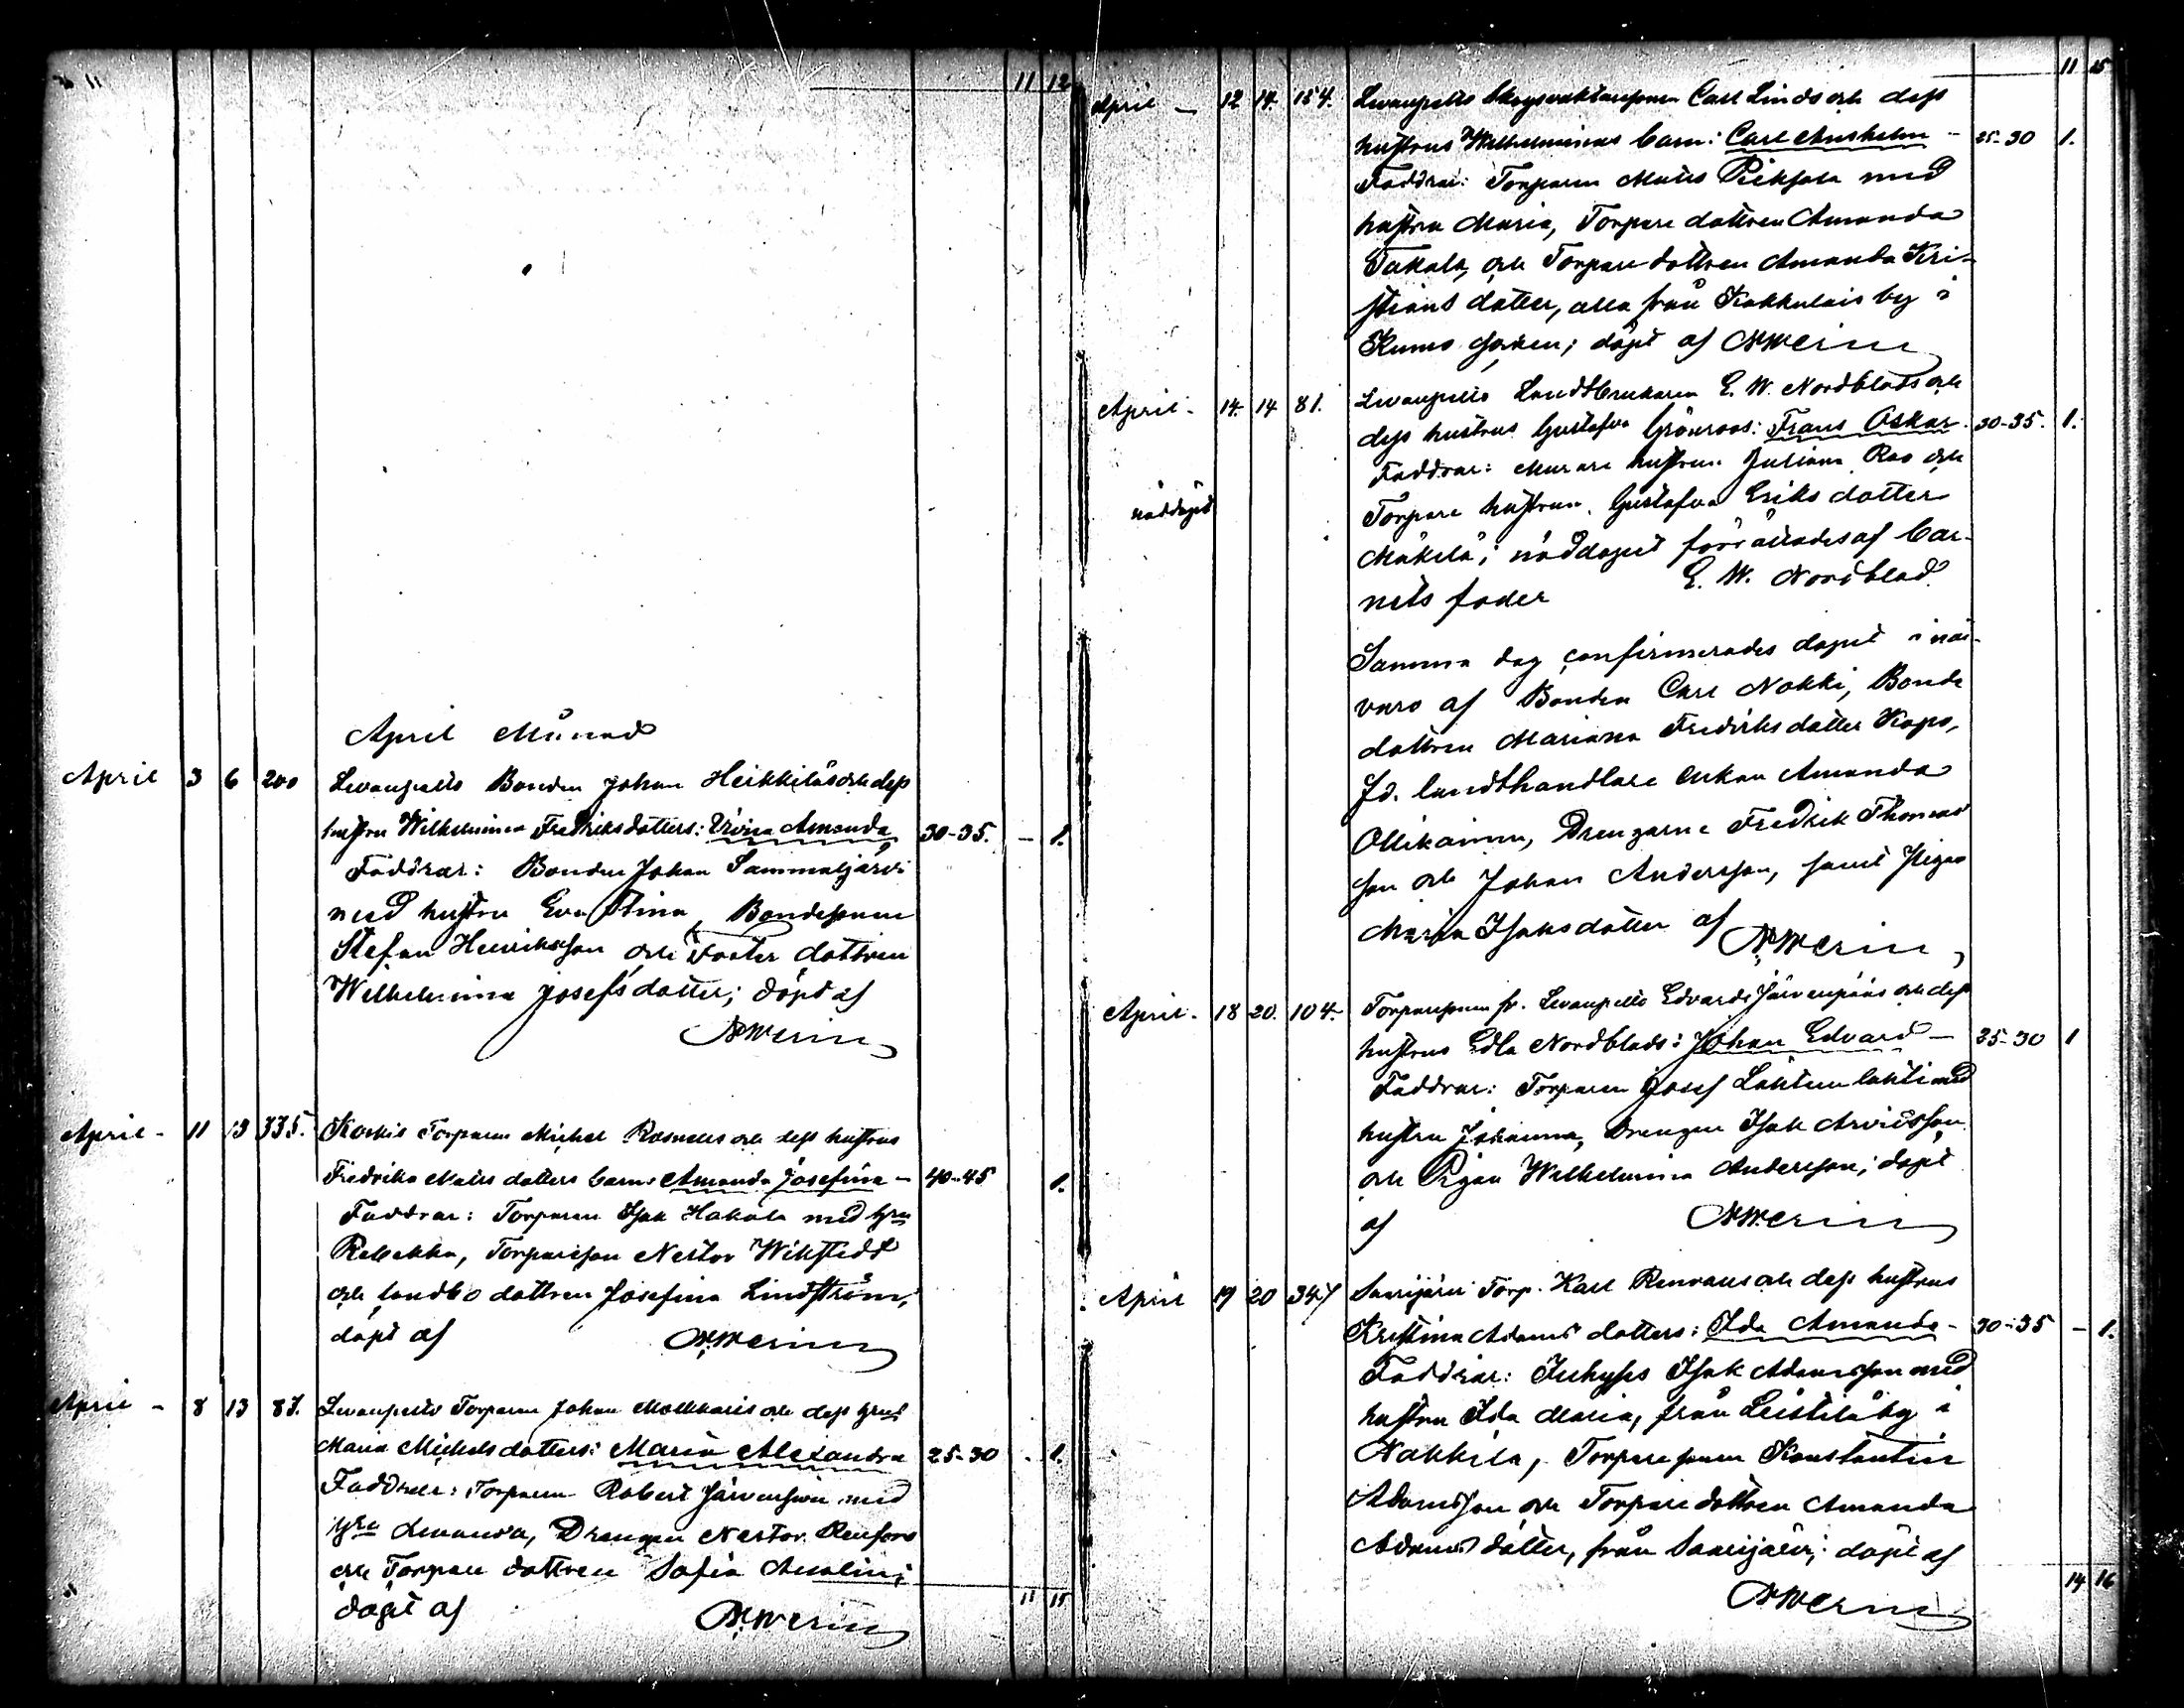 11 12
April Månad
April 3 6 200 Levanpelto Bonden Johan Heikkiläs och dess
hustru Wilhelmina Fredriksdotters: Viviia Amanda 30-35. - 1.
Faddrar: Bonden Johan Sammaljärvi
med hustru Eva Stina, Bondesonen
Stefan Henriksson och Foster dottren
Wilhelmina Josefsdotter; döpt af
Werin
April - 11 13 335. Korkis Torparen Michel Rosnells och dess hustrus
Fredrika Mats dotters barn: Amanda Josefina - 40-45 1.
Faddrar: Torparen Isak Hakala med hru
Rebekka, Torpareson Nestor Wikstedt
och landbo dottren Josefina Lindström;
döpt af Werin
April - 8 13 87. Levanpelto Torparen Johan Molkkaris och dess hrus
Maria Michels dotters: Maria Alexandra 25-30 . 1.
Faddrar: Torparen Robert Järvensivu med
hru Amanda, Drengen Nestor Renfors
och Torpare dottren Sofia Amalia;
döpt af Werin
11 15
11 15
April - 12 14. 184. Levanpelto Skogsvaktaresonen Carl Linds och dess
hustrus Wilhelminas barn: Carl Anshelm - 25-30 1.
Faddrar: Torparen Mats Piksala med
hustru Maria, Torpare dottren Amanda
Takala, och Torpare dottren Amanda Kri-
stians dotter, alla från Kakkulais by i
Kumo socken; döpt af Werin
April - 14. 14 81. Levanpelto Landtbrukaren E. W. Nordblads och
dess hustrus Gustafva Grönroos: Frans Oskar. 30-35. 1.
Faddrar: Murare hustrun Juliana Roo och
nöddöpt Torpare hustrun Gustafva Eriks dotter
Mäkelä; nöddopet förrättades af bar-
nets fader E. W. Nordblad
Samma dag confirmerades dopet i när-
varo af Bonden Carl Nokki, Bonde
dottren Mariana Fredriks dotter Kops,
Fd. landthandlare enkan Amanda
Ollikainen, Drengarne Fredrik Thomas
son och Johan Andersson, samt Pigan
Maria Isaks dotter af Werin
April - 18 20. 104. Torparesonen fr. Levanpelto Edvard Järvenpääs och dess
hustrus Edla Nordblads: Johan Edvard - 25-30 1
Faddrar: Torparen Josef Lahtenlahti med
hustru Johanna, Drengen Isak Arvidsson
och Pigan Wilhelmina Andersson; döpt
af Werin
April 19 20 347 Saarijärvi Torp. Karl Renvalls och dess hustrus
Kristina Adams dotters: Ida Amanda - 30-35 - 1.
Faddrar: Inhyses Isak Adamsson med
hustru Ida Maria, från Leistilä by i
Nakkila, Torparesonen Konstantin
Adamsson och Torpare dottren Amanda
Adams dotter, från Saarijärvi; döpt af
Werin
14 16